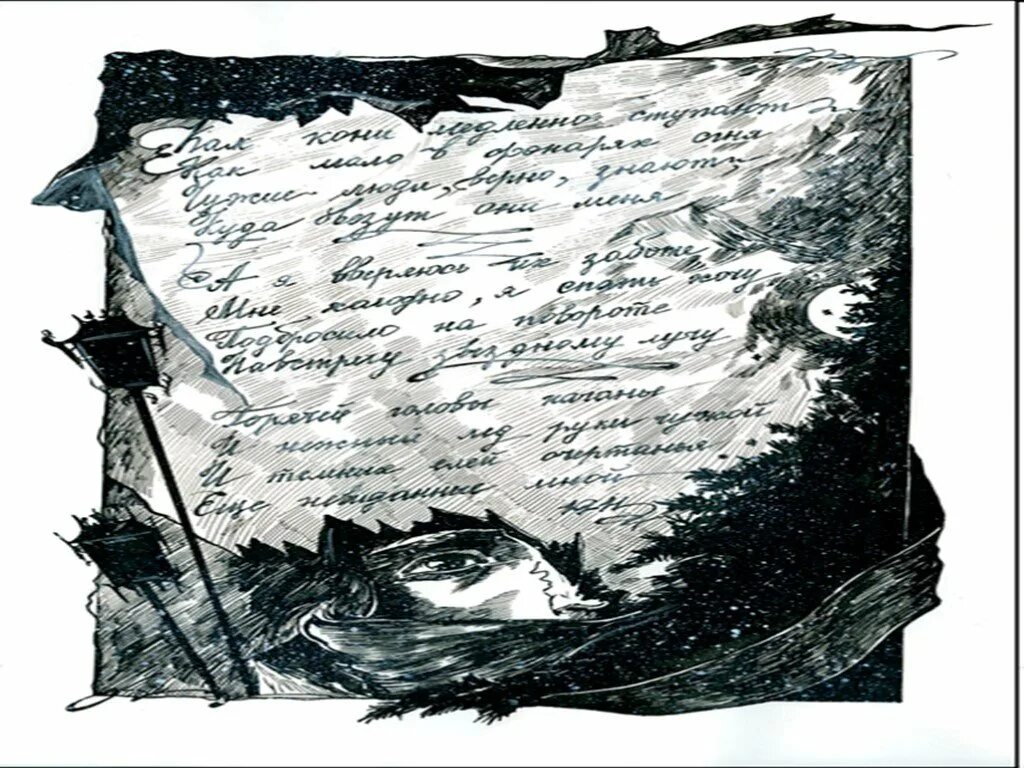 Как кони медленно ступают
Как мало в фонарях огня
Чужие люди, верно, знают,
Куда везут они меня
А я вверяюсь их заботе
Мне холодно, я спать хочу
Подбросило на повороте
Навстречу звёздному лучу
Горячей головы качанье
И нежный лед руки чужой
И темных елей очертанья
Еще невиданные мной